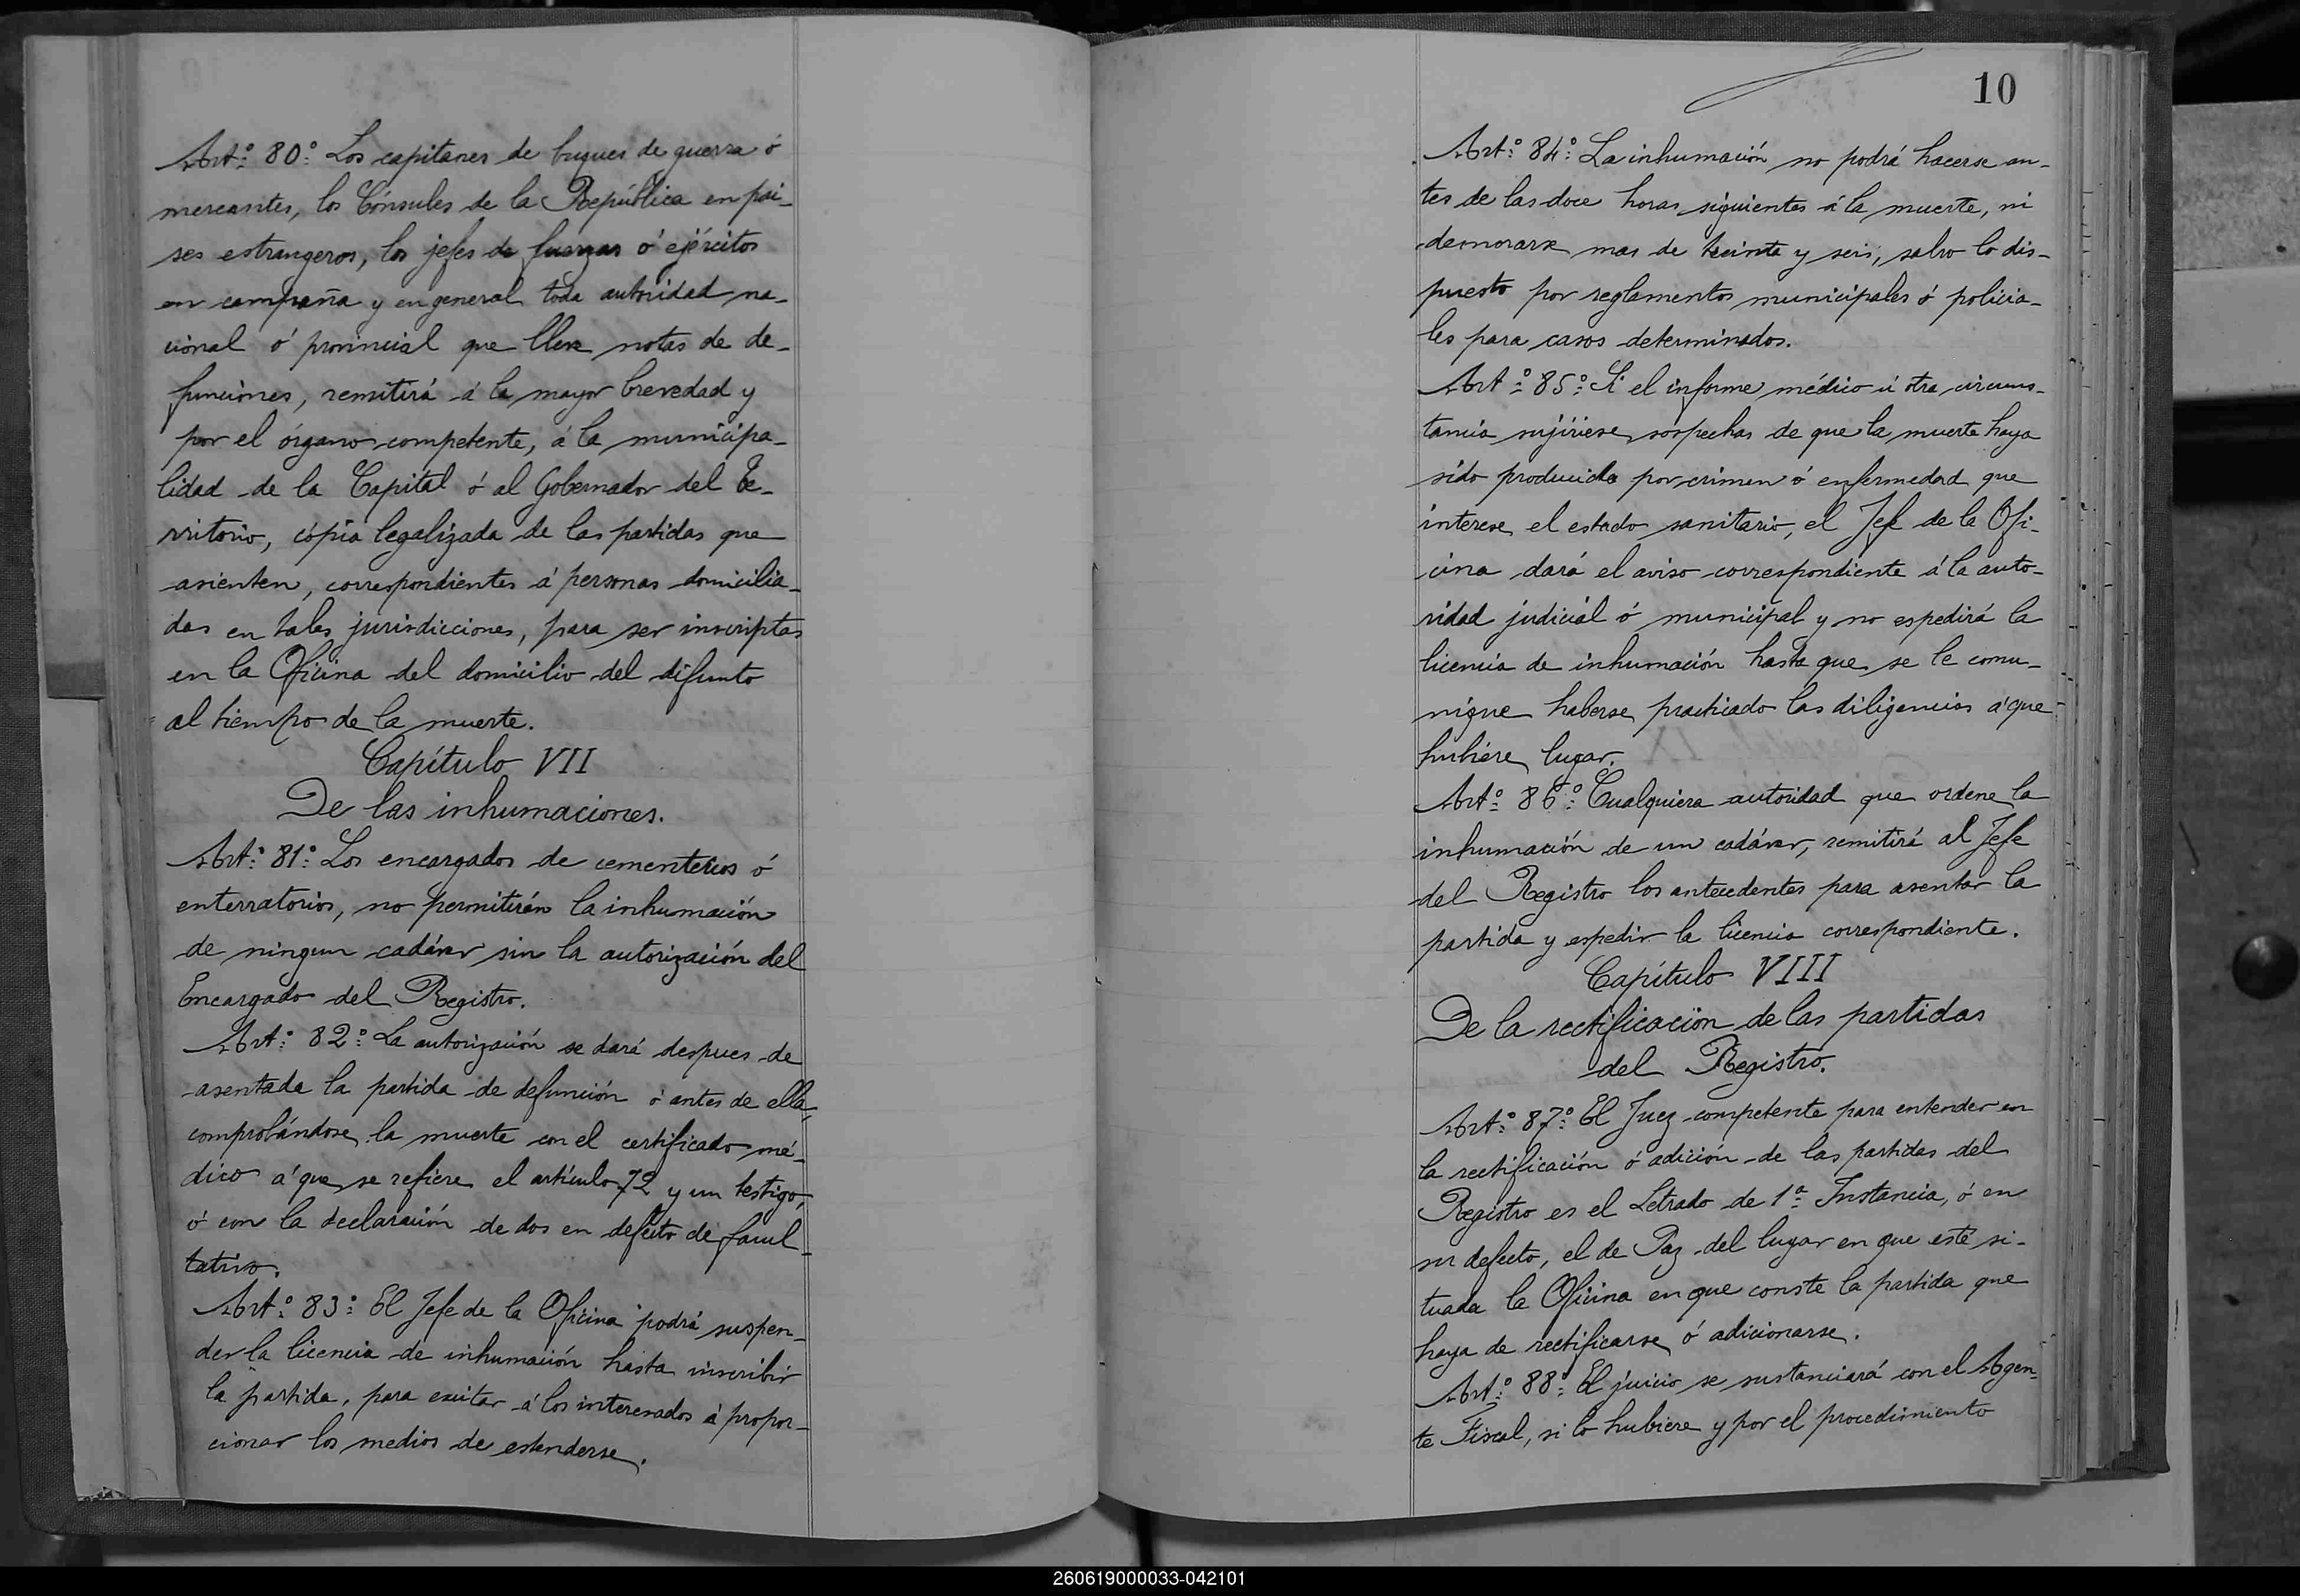 Artº 80º Los capitanes de buques de guerra ó
mercantes, los Cónsules de la República en pai-
ses estrangeros, los jefes de fuerzas ó ejércitos
en campaña y en general toda autoridad na-
cional ó provincial que lleve notas de de-
funciones, remitirá á la mayor brevedad y
por el órgano competente, á la municipa-
lidad de la Capital ó al Gobernador del Te-
rritorio, cópia legalizada de las partidas que
asienten, correspondientes á personas domicilia-
das en tales jurisdicciones, para ser inscriptas
en la Oficina del domicilio del difunto
al tiempo de la muerte.
Capítulo VII
De las inhumaciones.
Artº 81º Los encargados de cementerios ó
enterratorios, no permitirán la inhumación
de ningun cadáver sin la autorización del
Encargado del Registro.
Artº 82º La autorización se dará despues de
asentada la partida de defunción ó antes de ella,
comprobándose la muerte con el certificado mé-
dico á que se refiere el artículo 72 y un testigo,
ó con la declaración de dos en defecto de facul-
tativo.
Artº 83º El Jefe de la Oficina podrá suspen-
der la licencia de inhumación hasta inscribir
la partida, para exitar á los interesados á propor-
cionar los medios de estenderse.
10
Artº 84º La inhumación no podrá hacerse an-
tes de las doce horas siguientes á la muerte, ni
demorarse mas de treinta y seis, salvo lo dis-
puesto por reglamentos municipales ó policia-
les para casos determinados.
Artº 85º Si el informe médico ú otra circuns-
tancia sujiriese sospechas de que la muerte haya
sido producida por crimen ó enfermedad que
interese el estado sanitario, el Jefe de la Ofi-
cina dará el aviso correspondiente á la auto-
ridad judicial ó municipal y no espedirá la
licencia de inhumación hasta que se le comu-
nique haberse practicado las diligencias á que
hubiere lugar.
Artº 86º Cualquiera autoridad que ordene la
inhumación de un cadáver, remitirá al Jefe
del Registro los antecedentes para asentar la
partida y espedir la licencia correspondiente.
Capítulo VIII
De la rectificación de las partidas
del Registro.
Artº 87º El Juez competente para entender en
la rectificación ó adición de las partidas del
Registro es el Letrado de 1ª Instancia, ó en
su defecto, el de Paz del lugar en que esté si-
tuada la Oficina en que conste la partida que
haya de rectificarse ó adicionarse.
Artº 88º El juicio se sustanciará con el Agen-
te Fiscal, si lo hubiere y por el procedimiento
260619000033-042101